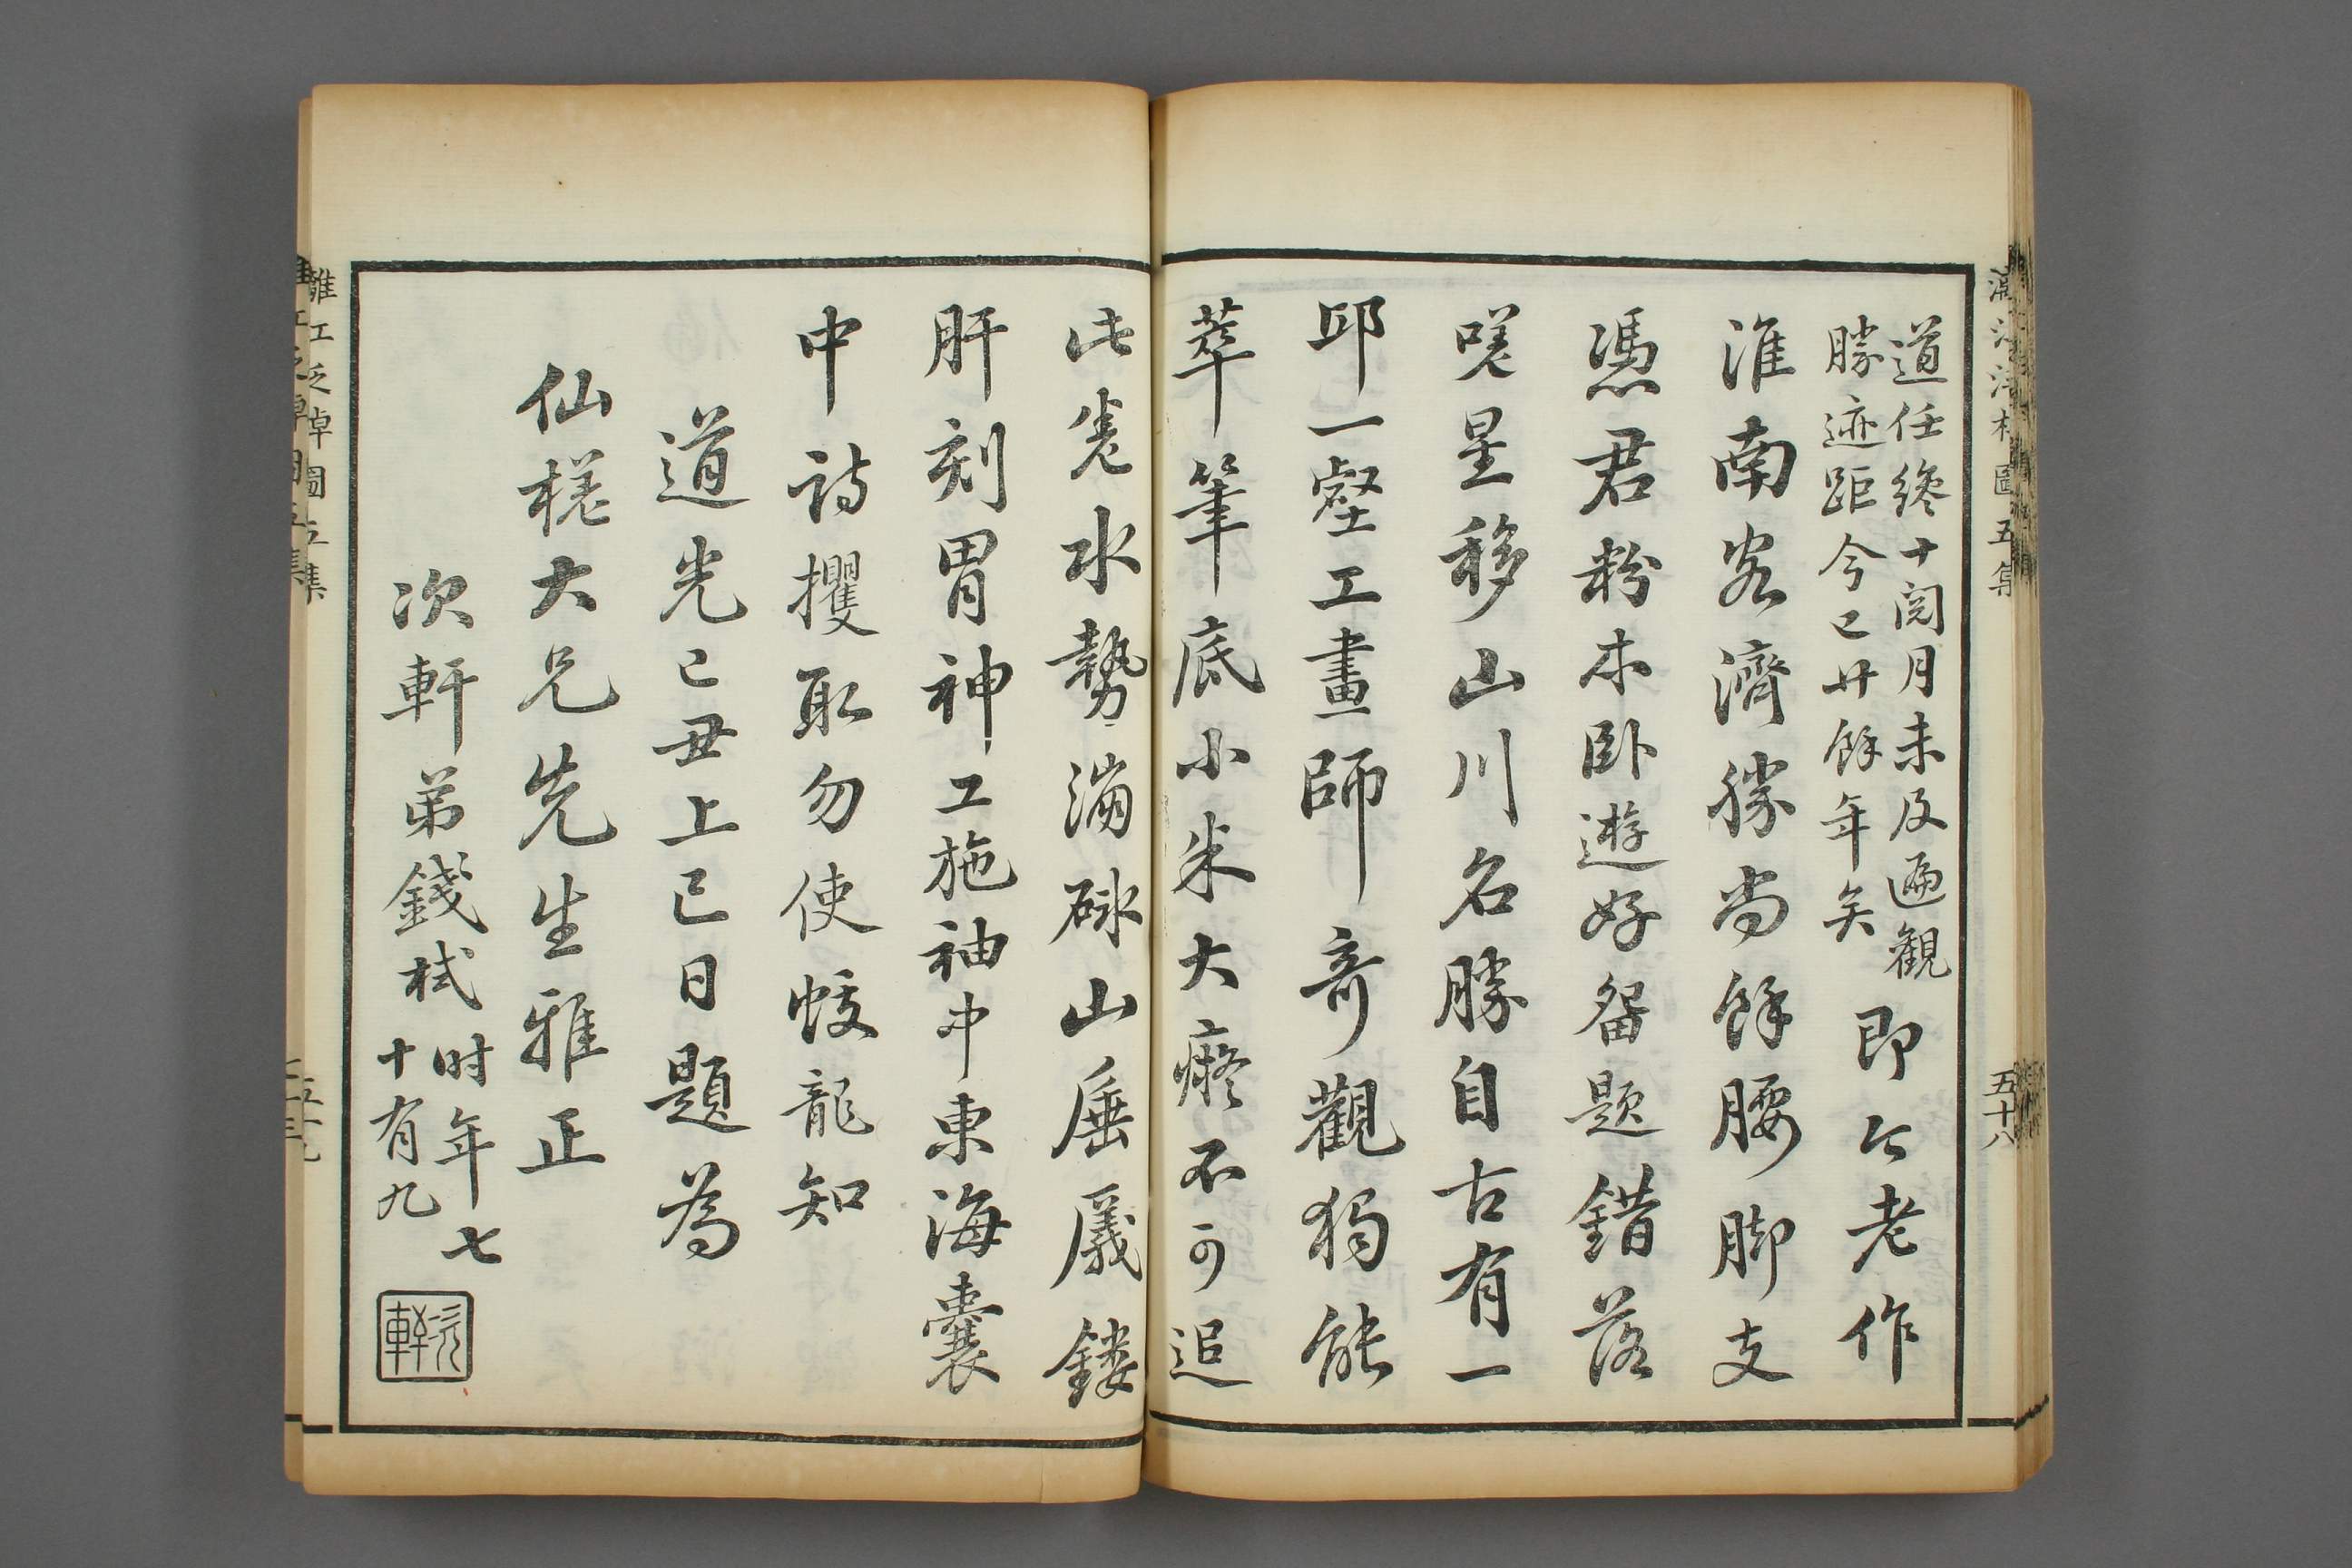 道任終十閱月未及遍觀
勝迹距今已廿餘年矣
即今老作
淮南客濟勝尚餘腰脚支
憑君粉本卧遊好留題錯落
嗟星移山川名勝自古有一
邱一壑工畫師奇觀獨能
萃筆底小米大癡不可追
此卷水勢滿硺山厜㕒鏤
肝刻胃神工施袖中東海囊
中詩攫取勿使蛟龍知
道光己丑上巳日題為
仙槎大兄先生雅正
次軒弟錢栻
时年七
十有九
次軒
圖五集
五十八
雜工泛圖五集